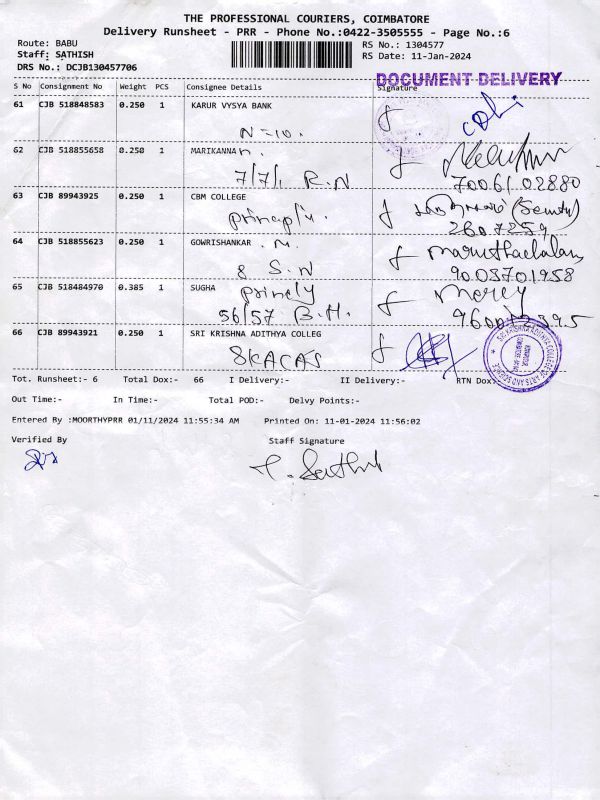 THE PROFESSIONAL COURIERS, COIMBATORE
Delivery Runsheet - PRR - Phone No.:0422-3505555 - Page No.:6
Route: BABU
RS No.: 1304577
Staff: SATHISH
RS Date: 11-Jan-2024
DRS No.: DCJB130457706
DOCUMENT DELIVERY
S No Consignment No Weight PCS Consignee Details Signature
61 CJB 518848583 0.250 1 KARUR VYSYA BANK
N = 10.
62 CJB 518855658 0.250 1 MARIKANNAN.
7/7/1 R.N
70061 02880
63 CJB 89943925 0.250 1 CBM COLLEGE
2607259
64 CJB 518855623 0.250 1 GOWRISHANKAR . M.
Maruthachalam
8 S.N
9003701958
65 CJB 518484970 0.385 1 SUGHA
Mercy
56/57 B.H.
66 CJB 89943921 0.250 1 SRI KRISHNA ADITHYA COLLEG
SKACAS
Tot. Runsheet:- 6 Total Dox:- 66 I Delivery:- II Delivery:- RTN Dox:-
Out Time:- In Time:- Total POD:- Delvy Points:-
Entered By :MOORTHYPRR 01/11/2024 11:55:34 AM Printed On: 11-01-2024 11:56:02
Verified By Staff Signature
T. Sathish